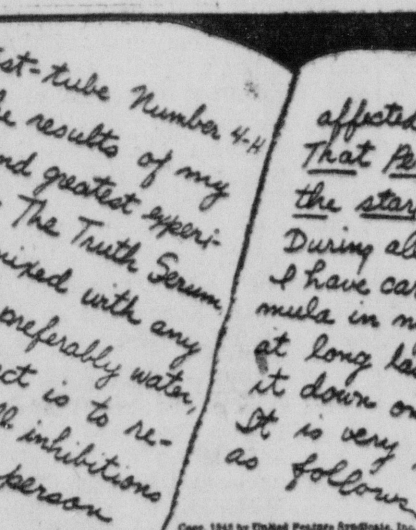 st-tube Number 4-H
e results of my
nd greatest experi-
The Truth Serum,
mixed with any
preferably water,
ct is to re-
inhibitions
person
affected
That Pe
the star
During al
I have car
mula in m
at long la
it down on
It is very
as follows
Copr. 1941 by United Feature Syndicate, Inc.